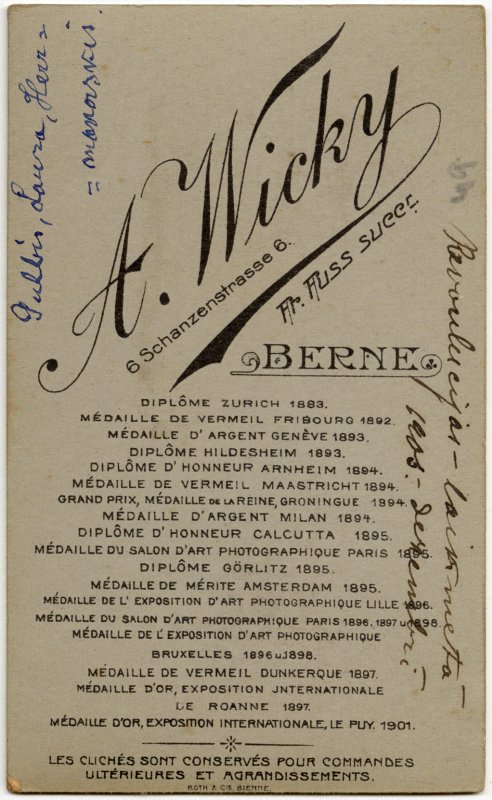 Gulbis, Laura, Herr=
= manovskis.
A. Wicky
6 Schanzenstrasse 6.
Fr. Fuss Succr.
BERNE
DIPLÔME ZURICH 1883.
MÉDAILLE DE VERMEIL FRIBOURG 1892.
MÉDAILLE D'ARGENT GENÈVE 1893.
DIPLÔME HILDESHEIM 1893.
DIPLÔME D'HONNEUR ARNHEIM 1894.
MÉDAILLE DE VERMEIL MAASTRICHT 1894.
GRAND PRIX, MÉDAILLE DE LA REINE, GRONINGUE 1894.
MÉDAILLE D'ARGENT MILAN 1894.
DIPLÔME D'HONNEUR CALCUTTA 1895.
MÉDAILLE DU SALON D'ART PHOTOGRAPHIQUE PARIS 1895.
DIPLÔME GÖRLITZ 1895.
MÉDAILLE DE MÉRITE AMSTERDAM 1895.
MÉDAILLE DE L'EXPOSITION D'ART PHOTOGRAPHIQUE LILLE 1896.
MÉDAILLE DU SALON D'ART PHOTOGRAPHIQUE PARIS 1896. 1897 u. 1898.
MÉDAILLE DE L'EXPOSITION D'ART PHOTOGRAPHIQUE
BRUXELLES 1896 u. 1898.
MÉDAILLE DE VERMEIL DUNKERQUE 1897.
MÉDAILLE D'OR, EXPOSITION JNTERNATIONALE
DE ROANNE 1897.
MÉDAILLE D'OR, EXPOSITION INTERNATIONALE, LE PUY. 1901.
LES CLICHÉS SONT CONSERVÉS POUR COMMANDES
ULTÉRIEURES ET AGRANDISSEMENTS.
ROTH & CIE, BIENNE.
Revolucijas-laikmetā
1905. - decembrī.